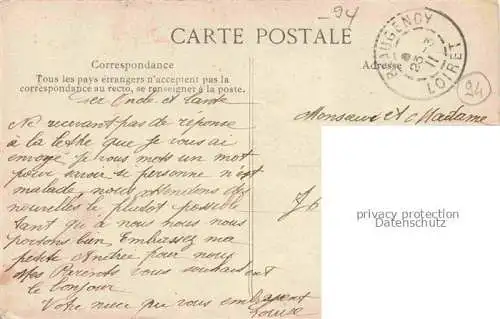 -94
CARTE POSTALE
BEAUGENCY
LOIRET
Correspondance
Adresse
Tous les pays étrangers n'acceptent pas la
correspondance au recto, se renseigner à la poste.
24
cher Oncle et tante
Monsieur et Madame
Ne recevant pas de reponse
à la lettre que je vous ai
envoyé je vous mets un mot
pour savoir si personne n'est
malade, nous attendons des
nouvelles le plutot possible
tant qu'à nous nous nous
portons bien, Embrassez ma
petite Andrée pour nous
Mes Parents vous souhaitent
le bonjour
Votre niece qui vous embrasse
Louise
privacy protection
Datenschutz